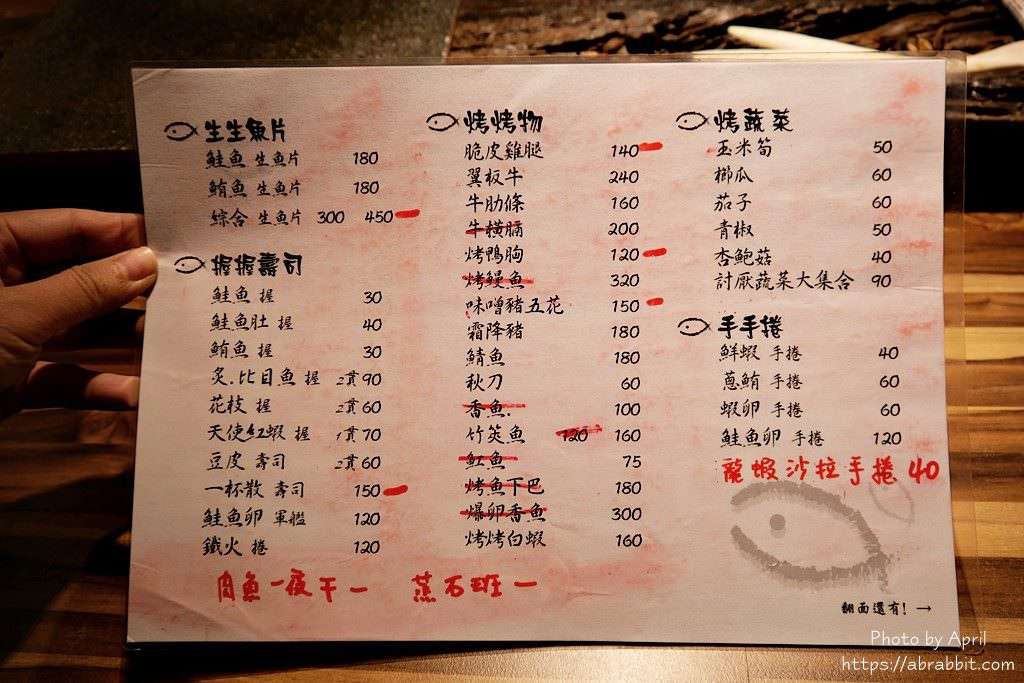 生生魚片
鮭魚 生魚片 180
鮪魚 生魚片 180
綜合 生魚片 300 450
握握壽司
鮭魚 握 30
鮭魚肚 握 40
鮪魚 握 30
炙.比目魚 握 2貫90
花枝 握 2貫60
天使紅蝦 握 1貫70
豆皮 壽司 2貫60
一杯散 壽司 150
鮭魚卵 軍艦 120
鐵火 捲 120
烤烤物
脆皮雞腿 140
翼板牛 240
牛肋條 160
牛橫膈 200
烤鴨胸 120
烤鰻魚 320
味噌豬五花 150
霜降豬 180
鯖魚 180
秋刀 60
香魚. 100
竹筴魚 120 160
魟魚 75
烤魚下巴 180
爆卵香魚 300
烤烤白蝦 160
烤蔬菜
玉米筍 50
櫛瓜 60
茄子 60
青椒 50
杏鮑菇 40
討厭蔬菜大集合 90
手手捲
鮮蝦 手捲 40
蔥鮪 手捲 60
蝦卵 手捲 60
鮭魚卵 手捲 120
龍蝦沙拉手捲 40
肉魚一夜干 一 蒸石班 一
翻面還有! →
Photo by April
https://abrabbit.com